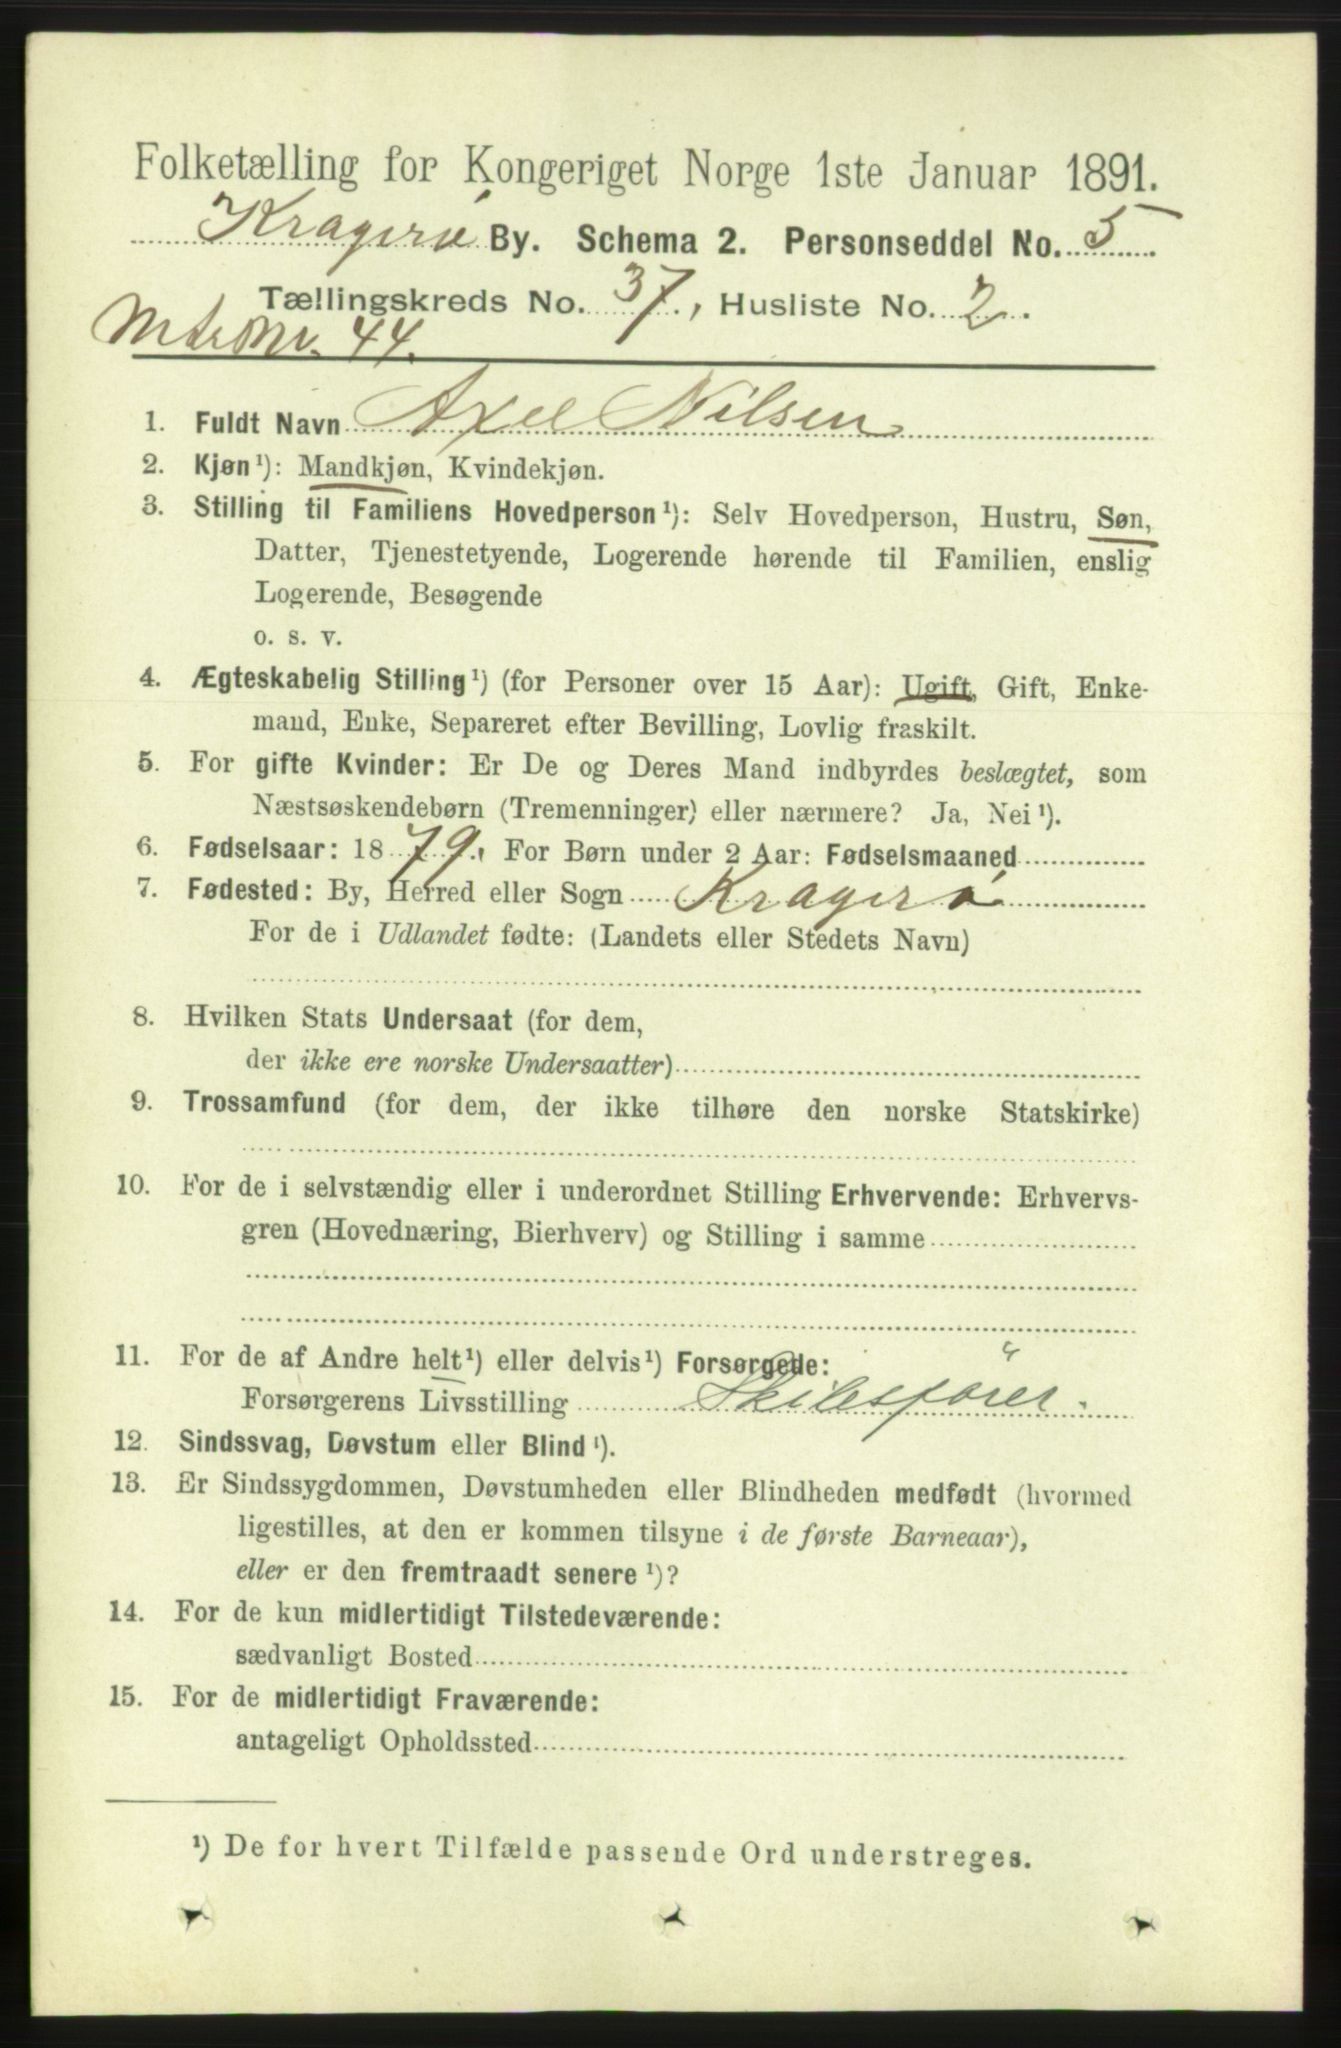 Folketælling for Kongeriget Norge 1ste Januar 1891.
Kragerø By. Schema 2. Personseddel No. 5
Tællingskreds No. 37, Husliste No. 2.
Mtr Nr. 44.
1. Fuldt Navn Axel Nilsen
2. Kjøn¹): Mandkjøn, Kvindekjøn.
3. Stilling til Familiens Hovedperson¹): Selv Hovedperson, Hustru, Søn,
Datter, Tjenestetyende, Logerende hørende til Familien, enslig
Logerende, Besøgende
o. s. v.
4. Ægteskabelig Stilling¹) (for Personer over 15 Aar): Ugift, Gift, Enke-
mand, Enke, Separeret efter Bevilling, Lovlig fraskilt.
5. For gifte Kvinder: Er De og Deres Mand indbyrdes beslægtet, som
Næstsøskendebørn (Tremenninger) eller nærmere? Ja, Nei¹).
6. Fødselsaar: 1879. For Børn under 2 Aar: Fødselsmaaned
7. Fødested: By, Herred eller Sogn Kragerø
For de i Udlandet fødte: (Landets eller Stedets Navn)
8. Hvilken Stats Undersaat (for dem,
der ikke ere norske Undersaatter)
9. Trossamfund (for dem, der ikke tilhøre den norske Statskirke)
10. For de i selvstændig eller i underordnet Stilling Erhvervende: Erhvervs-
gren (Hovednæring, Bierhverv) og Stilling i samme
11. For de af Andre helt¹) eller delvis¹) Forsørgede:
Forsørgerens Livsstilling Skibsfører.
12. Sindssvag, Døvstum eller Blind¹).
13. Er Sindssygdommen, Døvstumheden eller Blindheden medfødt (hvormed
ligestilles, at den er kommen tilsyne i de første Barneaar),
eller er den fremtraadt senere¹)?
14. For de kun midlertidigt Tilstedeværende:
sædvanligt Bosted
15. For de midlertidigt Fraværende:
antageligt Opholdssted
¹) De for hvert Tilfælde passende Ord understreges.